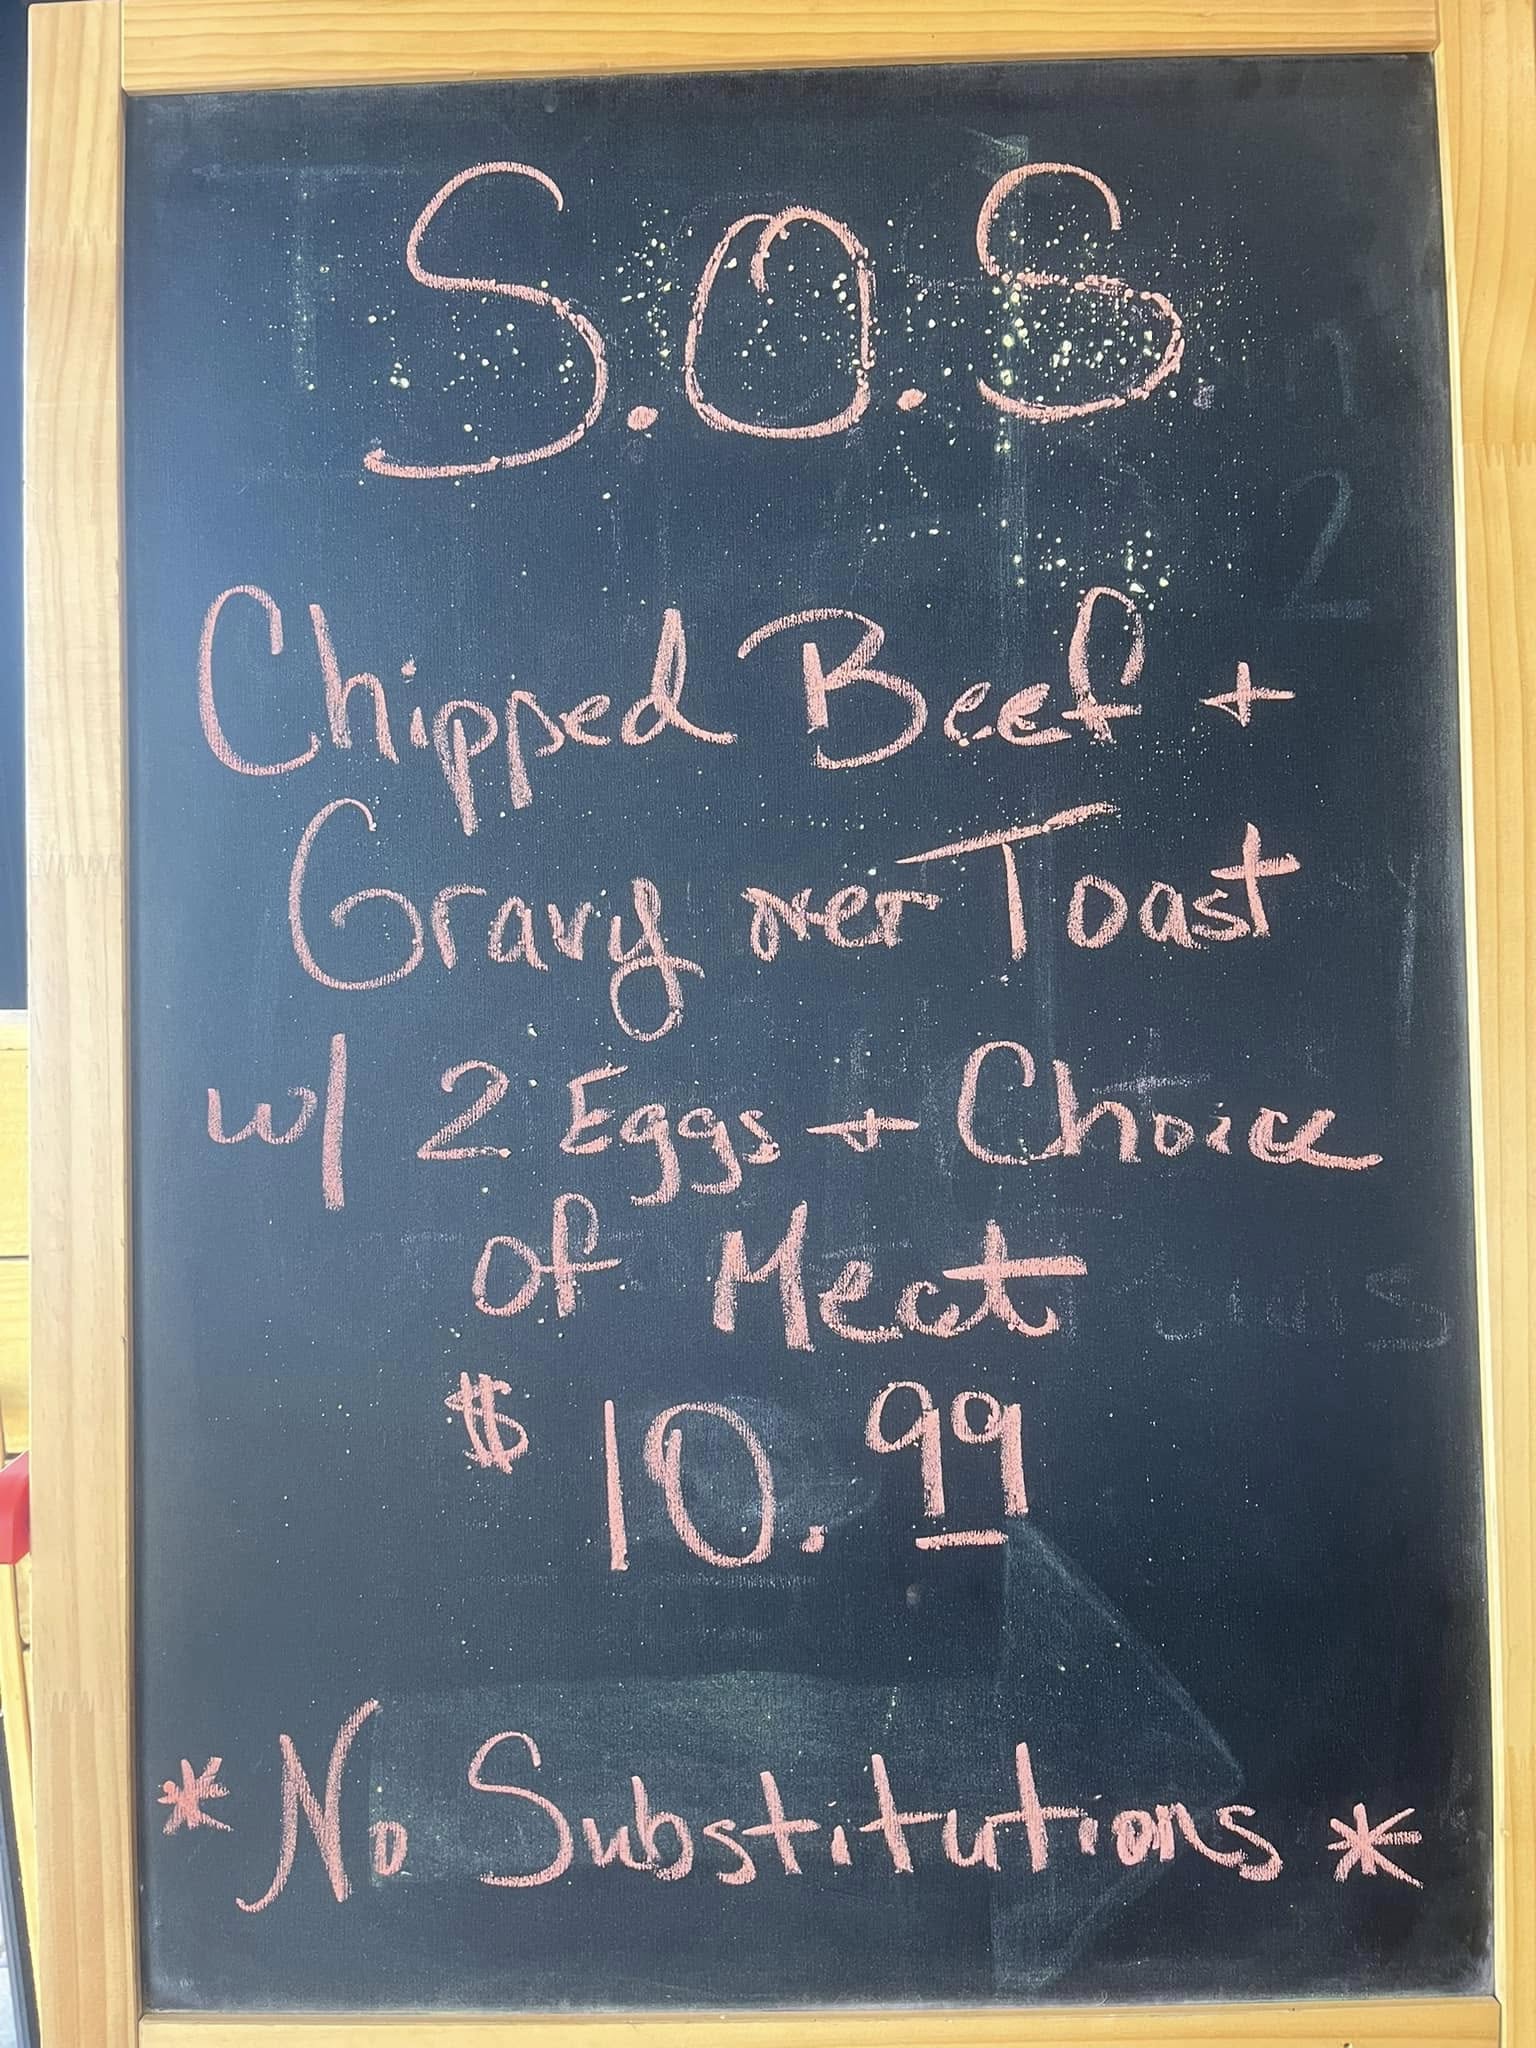 S.O.S
Chipped Beef +
Gravy over Toast
w/ 2 Eggs + Choice
of Meat
$10.99
* No Substitutions *